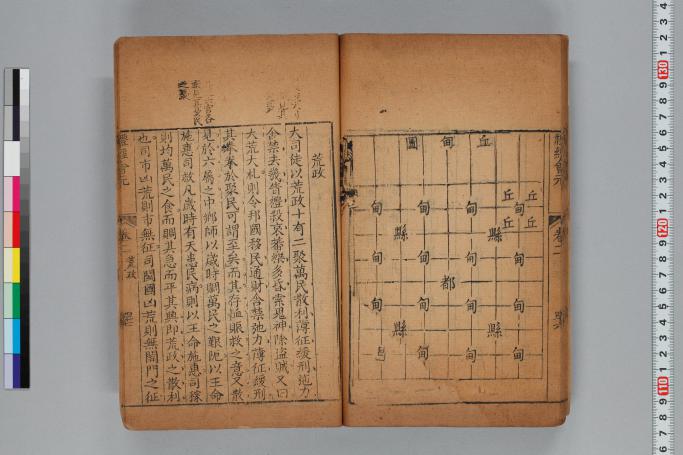 丘甸圖
丘 丘
甸 甸 甸 丘 丘
縣 縣
甸 甸 甸 甸
都
甸 甸 甸 甸
縣 縣
甸 甸 甸
禮經會元
卷二
荒政
大司徒以荒政十有二聚萬民散利薄征緩刑弛力
舍禁去幾眚禮殺哀蕃樂多昏索鬼神除盜賊又曰
大荒大札則令邦國移民通財舍禁弛力薄征緩刑
其拳拳於聚民可謂至矣而其存恤賑救之意又散
見於六屬之中鄉師以歲時賙萬民之艱阨以王命
施惠司救凡歲時有天患民病則以王命施惠司稼
則均萬民之食而賙其急而平其興即荒政之散利
也司市凶荒則市無征司關國凶荒則無關門之征
禮經會元
荒政
130
120
110